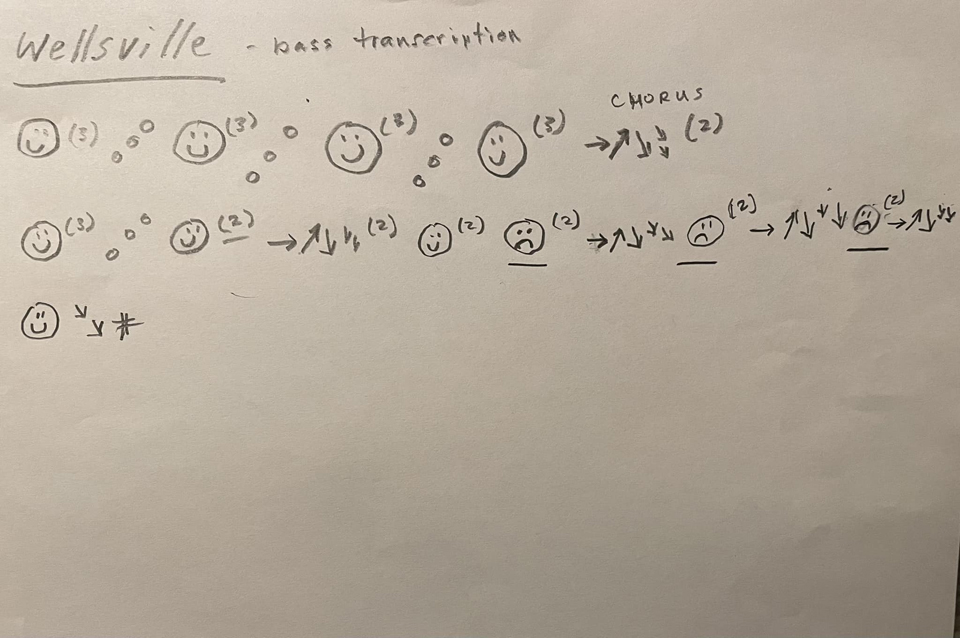 Wellsville - bass transcription
CHORUS
☺ (3) ☺ (3) ☺ (3) ☺ (3) → ↗ ↘ ↘ ↘ (2)
☺ (3) ☺ (2) → ↗ ↓ ↘ ↘ (2) ☺ (2) ☹ (2) → ↗ ↓ ↘ ↘ ☹ (2) → ↗ ↓ ↓ ↓ ☹ (2) → ↗ ↓ ↓ ↓
☺ ↘ ↘ #